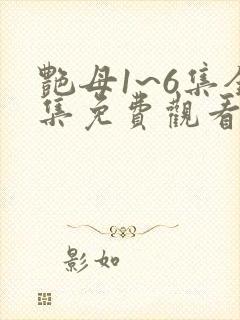 艷母1~6集全
集免費觀看
影如